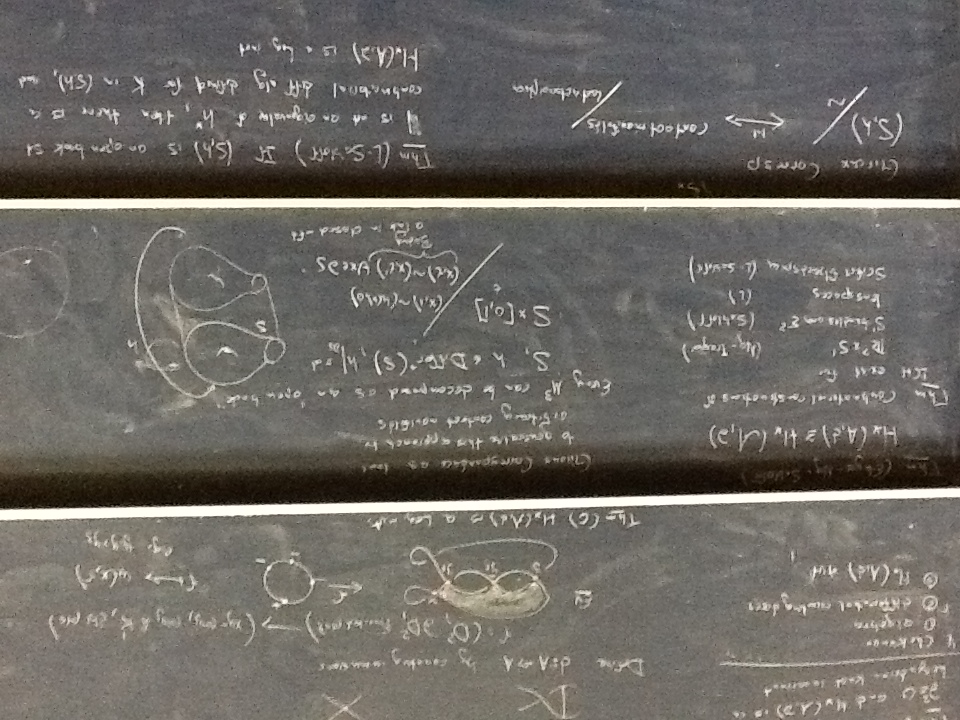 ∂²=0 and H*(A,∂) is a
Legendrian knot invariant
Chekanov
① algebra
② differential counting discs
③ H*(A,d) inv
Define d: A → A by counting immersions
f: (D², ∂D², marked pts) → (xy-proj, proj of K, dbl pts)
Ex
f
f ↦ w(x,f)
eg. y₁y₂y₃
Thm (C) H*(A,d) is a Leg inv.
Thm (Etnyre-Ng-Sabloff)
H*(A,d) ≅ H*(A,∂)
Thm Combinatorial constructions of
LCH exist for
R²×S¹ (Ng-Traynor)
S¹ bundles over Σ² (Sabloff)
lens spaces (L)
Seifert fibered spaces (L-Sabloff)
Giroux Correspondence as tool
to generalize this approach to
arbitrary contact manifolds
Every M³ can be decomposed as an "open book"
S, h ∈ Diffeo⁺(S), h|∂S = id
S × [0,1]
t
(x,1)~(h(x),0)
(x,t)~(x,t') ∀x∈∂S
Binding
a link in closed mfd
S
h
Giroux Corresp
(S,h)/~ ↔ contact manifolds/contactomorphism
Thm (L-Sabloff) If (S,h) is an open book st
1 is not an eigenvalue of h*, then there is a
combinatorial diff alg defined for K in (S,h), and
H*(A,∂) is a Leg inv